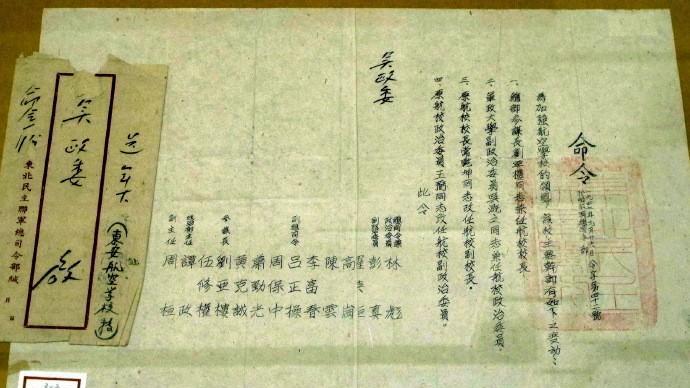 命令
令字第四十二號
為加強航空學校的領導，該校主要幹部有如下之變動：
一、總部參謀長劉亞樓同志兼任航校校長。
二、軍政大學副政治委員吳溉之同志兼任航校政治委員。
三、原航校校長常乾坤同志改任航校副校長。
四、原航校政治委員王弼同志改任航校副政治委員。
此令
吳政委
總司令兼政治委員 林彪
副政治委員 彭真
羅榮桓
高崗
陳雲
李富春
副總司令 呂正操
周保中
蕭勁光
黃克誠
參謀長 劉亞樓
伍修權
主任 譚政
副主任 周桓
送
(東安航空學校
吳政委 啟
命令一份
東北民主聯軍總司令部緘 月 日